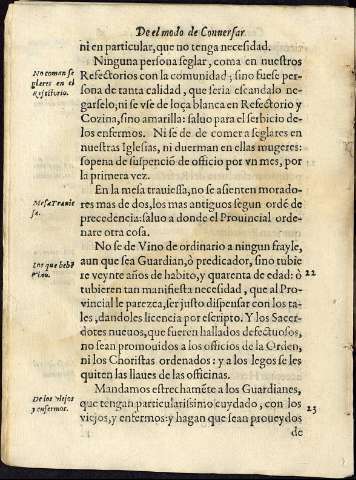 De el modo de Conuersar
ni en particular, que no tenga necesidad.
Ninguna persona seglar, coma en nuestros
No coman se
glares en el
Refitorio.
Refectorios con la comunidad; sino fuese per-
sona de tanta calidad, que seria escandalo ne-
garselo; ni se vse de loça blanca en Refectorio y
Cozina, sino amarilla: saluo para el serbicio de
los enfermos. Ni se de de comer a seglares en
nuestras Iglesias, ni duerman en ellas mugeres:
sopena de suspenciõ de officio por vn mes, por
la primera vez.
En la mesa trauiessa, no se assienten morado-
Mesa Trauie
sa.
res mas de dos, los mas antiguos segun ordẽ de
precedencia: saluo a donde el Prouincial orde-
nare otra cosa.
No se de Vino de ordinario a ningun frayle,
Los que bebẽ
vino.
aun que sea Guardian, ò predicador, sino tubie
re veynte años de habito, y quarenta de edad: ò
22
tubieren tan manifiesta necesidad, que al Pro-
vincial le parezca, ser justo dispensar con los ta-
les, dandoles licencia por escripto. Y los Sacer-
dotes nueuos, que fueren hallados defectuosos,
no sean promouidos a los officios de la Orden,
ni los Choristas ordenados: y a los legos se les
quiten las llaues de las officinas.
Mandamos estrechamẽte a los Guardianes,
De los viejos
y enfermos.
que tengan particularissimo cuydado, con los
23
viejos, y enfermos: y hagan que sean proueydos
de